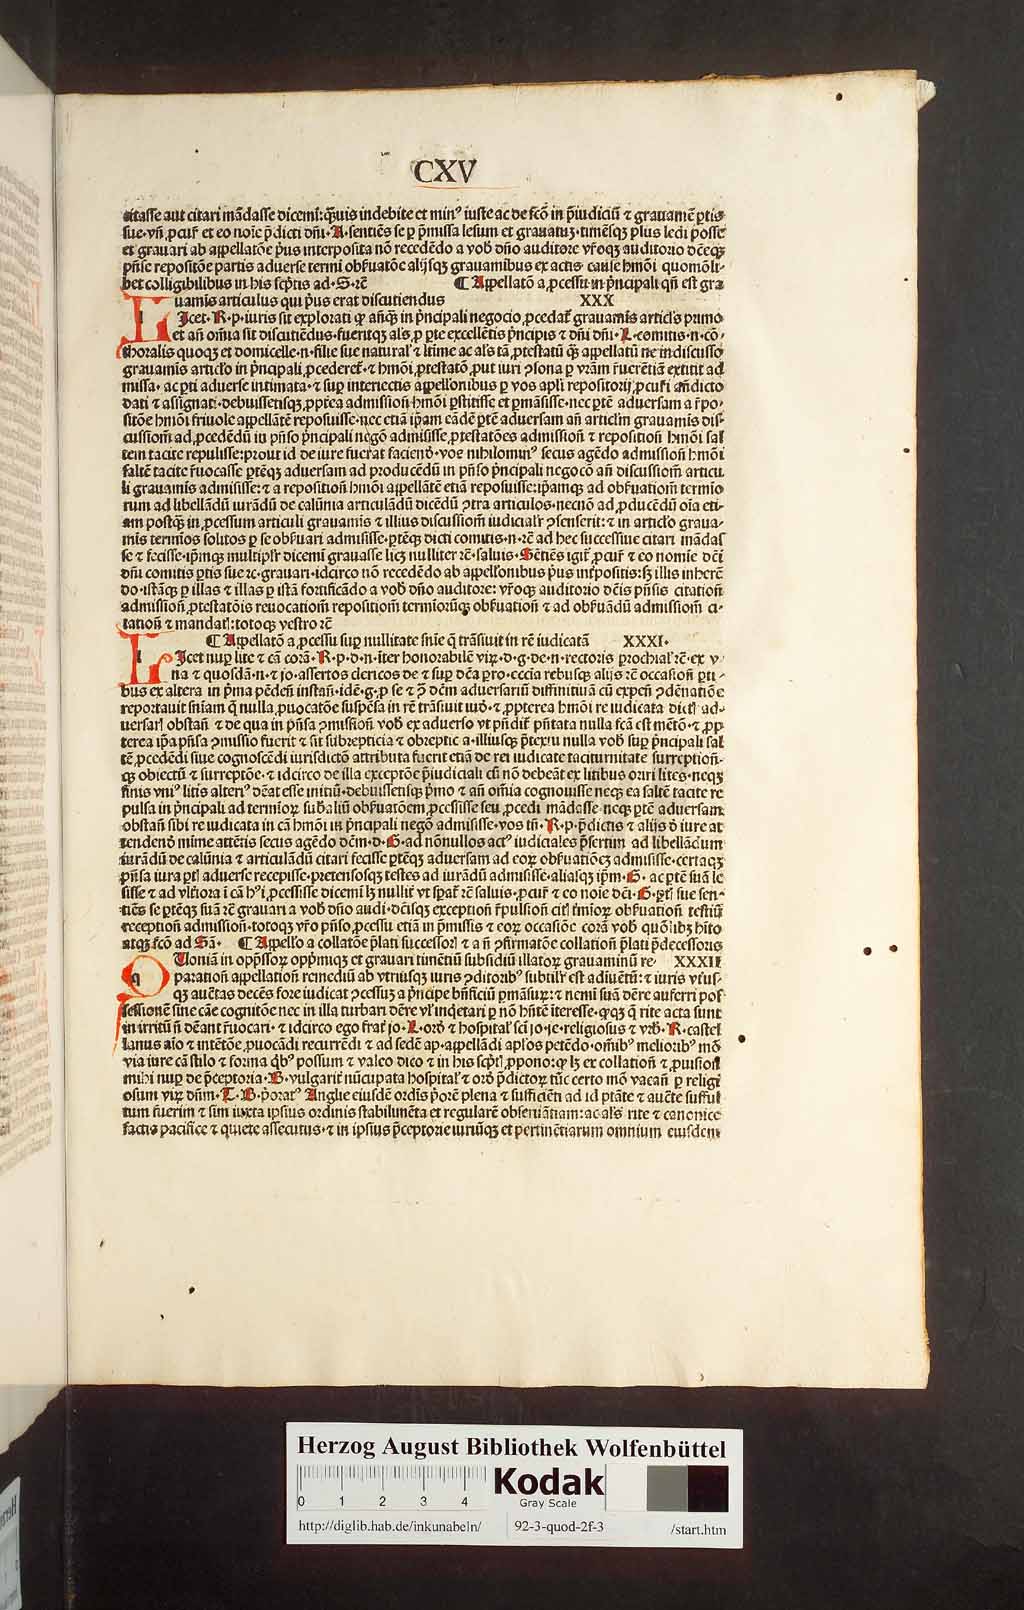 CXV
citasse aut citari mādasse dicemī: q̄uis indebite et minꝰ iuste ac de fcō in p̄iudiciū ⁊ grauamē ꝑtis
sue·vn̄ ꝓcur̄ et eo noīe p̄dicti dn̄i·A·sentiēs se ꝑ p̄missa lesum et grauatuꝫ·timēsqꝫ plus ledi posse
et grauari ab appellatōe p̄us interposita nō recedēdo a vob̄ dn̄o auditore vr̄oqꝫ auditorio dc̄eqꝫ
pn̄se repositōe partis aduerse termi obẜuatōe alijsqꝫ grauamibus ex actis cause hmōi quomōli-
bet colligibilibus in his scp̄tis ad·S·rc̄ ¶ Appellatō a ꝓcessu in p̄ncipali qn̄ est gra
uamis articulus qui p̄us erat discutiendus XXX
Licet·R·p·iuris sit explorati ꝙ añqꝫ in p̄ncipali negocio ꝓcedat̄ grauamis articl̄s primo
et an̄ om̄ia sit discutiēdus·fueritqꝫ al̄s ꝓ ꝑte excellētis p̄ncipis ⁊ dn̄i dn̄i·L·comitis·n·cō-
thoralis quoqꝫ et domicelle·n·filie sue natural̄ ⁊ l̄time ac al̄s tā ꝓtestatū qꝫ appellatū ne indiscusso
grauamis articl̄o in p̄ncipali ꝓcederet̄·⁊ hmōi ꝓtestatō ꝓut iuri ꝯsona ꝑ vr̄am r̄uerētiā extitit ad
missa·ac ꝑti aduerse intimata·⁊ suꝑ interiectis appell̄onibus ꝑ vos apl̄i repositorij ꝓcur̄i an̄dicto
dati ⁊ assignati·debuissetisqꝫ ꝓpt̄ea admission̄ hmōi ꝑstitisse et ꝑmāsisse·nec ꝑtē aduersam a r̄po-
sitōe hmōi friuole appellātē reposuisse·nec etiā ip̄am eādē ꝑtē aduersam an̄ articl̄m grauamis dis-
cussiom̄ ad ꝓcedēdū in pn̄so p̄ncipali negō admisisse ꝓtestatōes admission̄ ⁊ reposition̄ hmōi sal
tem tacite repulisse: prout id de iure fuerat faciend̄·vos nihilominꝰ secus agēdo admission̄ hmōi
saltē tacite r̄uocasse ꝑtēqꝫ aduersam ad producēdū in pn̄so p̄ncipali negocō an̄ discussiom̄ articu
li grauamis admisisse: ⁊ a reposition̄ hmōi appellātē etiā reposuisse: ip̄amqꝫ ad obẜuatiom̄ termio
rum ad libellādū iurādū de calūnia articulādū dicēdū ꝯtra articulos·necnō ad ꝓducēdū oīa eti-
am postqꝫ in ꝓcessum articuli grauamis ⁊ illius discussiom̄ iudicial̄r ꝯsenserit: ⁊ in articl̄o graua-
mis termīos solitos ꝑ se obẜuari admisisse·ꝑtēqꝫ dicti comitis·n·rc̄ ad hec successiue citari mādas
se ⁊ fecisse·ip̄mqꝫ multipl̄r dicemī grauasse licꝫ nulliter rc̄·saluis·Sētiēs igit̄ ꝓcur̄ ⁊ eo nomīe dc̄i
dn̄i comitis ꝑtis sue rc̄·grauari·idcirco nō recedēdo ab appell̄onibus p̄us int̄positis: sꝫ illis inherē
do·istāqꝫ ꝑ illas ⁊ illas ꝑ istā fortificādo a vob̄ dn̄o auditore: vr̄oqꝫ auditorio dc̄is pn̄sis citation̄
admission̄ ꝓtestatōis reuocation̄ reposition̄ termiorūqꝫ obẜuation̄ ⁊ ad obẜuādū admissiom̄ ci-
tation̄ ⁊ mandat̄: totoqꝫ vestro rc̄
¶ Appellatō a ꝓcessu suꝑ nullitate sn̄ie q̄ trāsiuit in rē iudicatā XXXI·
Licet nuꝑ lite ⁊ cā corā·R·p·d·n·iter honorabilē virꝫ·d·g·de·n·rectoris ꝑrochial̄·rc̄·ex v-
na ⁊ quosdā·n·⁊ jo·assertos clericos de ⁊ suꝑ dc̄a ꝓro·ecc̄ia rebusqꝫ alijs rc̄ occasion̄ ꝑti-
bus ex altera in p̄ma pēden̄ instan̄·idē·g·ꝑ se ⁊ ꝯ̄ dc̄m aduersariū diffinitiuā cū expen̄ ꝯdēnatiōe
reportauit sn̄iam q̄ nulla ꝓuocatōe suspēsa in rē trāsiuit iud̄·⁊ ꝓpterea hmōi re iudicata dict̄i ad-
uersar̄i obstan̄ ⁊ de qua in pn̄sa ꝯmission̄ vob̄ ex aduerso vt pn̄dit̄ pn̄tata nulla fcā est mētō·⁊ ꝓp
terea ip̄a pn̄sa ꝯmissio fuerit ⁊ sit subrepticia ⁊ obreptic a·illiusqꝫ p̄textu nulla vob̄ suꝑ p̄ncipali sal
tē ꝓcedēdi siue cognoscēdi iurisdictō attributa fuerit etiā de rei iudicate taciturnitate surreption̄-
qꝫ obiectū ⁊ surreptōe·⁊ idcirco de illa exceptōe p̄iudiciali cū nō debeāt ex litibus oriri lites·neqꝫ
finis vniꝰ litis alteriꝰ dēat esse initiū·debuissetisqꝫ p̄mo ⁊ an̄ om̄ia cognouisse neqꝫ ea saltē tacite re
pulsa in p̄ncipali ad termiorꝫ sub̄aliū obẜuatōem ꝓcessisse seu ꝓcedi mādasse·neqꝫ ꝑtē aduersam
obstan̄ sibi re iudicata in cā hmōi in p̄ncipali negō admisisse·vos tn̄·R·p·p̄dictis ⁊ alijs d̄ iure at
tendend̄ mīme attētis secus agēdo dc̄m·d·G·ad nōnullos actꝰ iudiciales p̄sertim ad libellādum
iurādū de calūnia ⁊ articulādū citari fecisse ꝑtēqꝫ aduersam ad eorꝫ obẜuatiōeꝫ admisisse·certaqꝫ
pn̄sa iura ꝑt̄i aduerse recepisse·pretensosqꝫ testes ad iurādū admisisse·aliasqꝫ ip̄m·G·ac ꝑtē suā le
sisse ⁊ ad vl̄tiora ī cā hꝰi ꝓcessisse dicemī lꝫ nullit̄ vt sꝑat̄ rc̄ saluis·ꝓcur̄ ⁊ eo noīe dc̄i·G·ꝑt̄i sue sen-
tiēs se ꝑtēqꝫ suā rc̄ grauari a vob̄ dn̄o audi·dc̄isqꝫ exception̄ r̄pulsion̄ cit̄i t̄miorꝫ obẜuation̄ testiū
reception̄ admission̄·totoqꝫ vr̄o pn̄so ꝓcessu etiā in p̄missis ⁊ eorꝫ occasiōe corā vob̄ quōlibꝫ hīto
atqꝫ fcō ad Sā· ¶ Appell̄o a collatōe p̄lati successor̄i ⁊ a n̄ ꝯfirmatōe collation̄ p̄lati p̄decessoris
Quoniā in opp̄ssorꝫ opp̄miqꝫ et grauari timētiū subsidiū illatorꝫ grauaminū re XXXII
paration̄ appellation̄ remediū ab vtriusqꝫ iuris ꝯditoribꝰ subtilr̄ est adiuētū: ⁊ iuris vt̄us-
qꝫ auc̄tas decēs fore iudicat ꝯcessuꝫ a p̄ncipe bn̄ficiū ꝑmāsurꝫ: ⁊ nemī suā dēre auferri pos
sessionē sine cāe cognitōe nec in illa turbari dēre vl̄ inq̄etari ꝑ nō hn̄tē iteresse·ꝙqꝫ q̄ rite acta sunt
in irritū n̄ dēant r̄uocari·⁊ idcirco ego frat̄ jo·L·ord̄ ⁊ hospital̄ sc̄i jo·je·religiosus ⁊ vrb̄·R·castel
lanus aīo ⁊ intētōe ꝓuocādi recurrēdi ⁊ ad sedē ap·appellādi apl̄os petēdo·oīm̄bꝰ melioribꝰ mō
via iure cā stilo ⁊ forma q̄bꝰ possum ⁊ valeo dico ⁊ in his scp̄t̄i ꝓpono: ꝙ lꝫ ex collation̄ ⁊ ꝓuision̄
mihi nuꝑ de p̄ceptoria·B·vulgarit̄ nūcupata hospital̄ ⁊ ord̄ p̄dictorꝫ tūc certo mō vacan̄ ꝑ religi
osum virꝫ dn̄m·T·B·p̄oratꝰ Anglie eiusdē ordīs p̄orē plena ⁊ sufficiēti ad id ptāte ⁊ auc̄te suffult
tum r̄uerim ⁊ sim iuxta ipsius ordinis stabilimēta et regularē obseruātiam: ac al̄s rite ⁊ canonice
factis pacifice ⁊ quiete assecutus·⁊ in ipsius p̄ceptorie iuriūqꝫ et pertinētiarum omnium eiusdem
Herzog August Bibliothek Wolfenbüttel
0 1 2 3 4
Kodak
Gray Scale
http://diglib.hab.de/inkunabeln/ 92-3-quod-2f-3 /start.htm